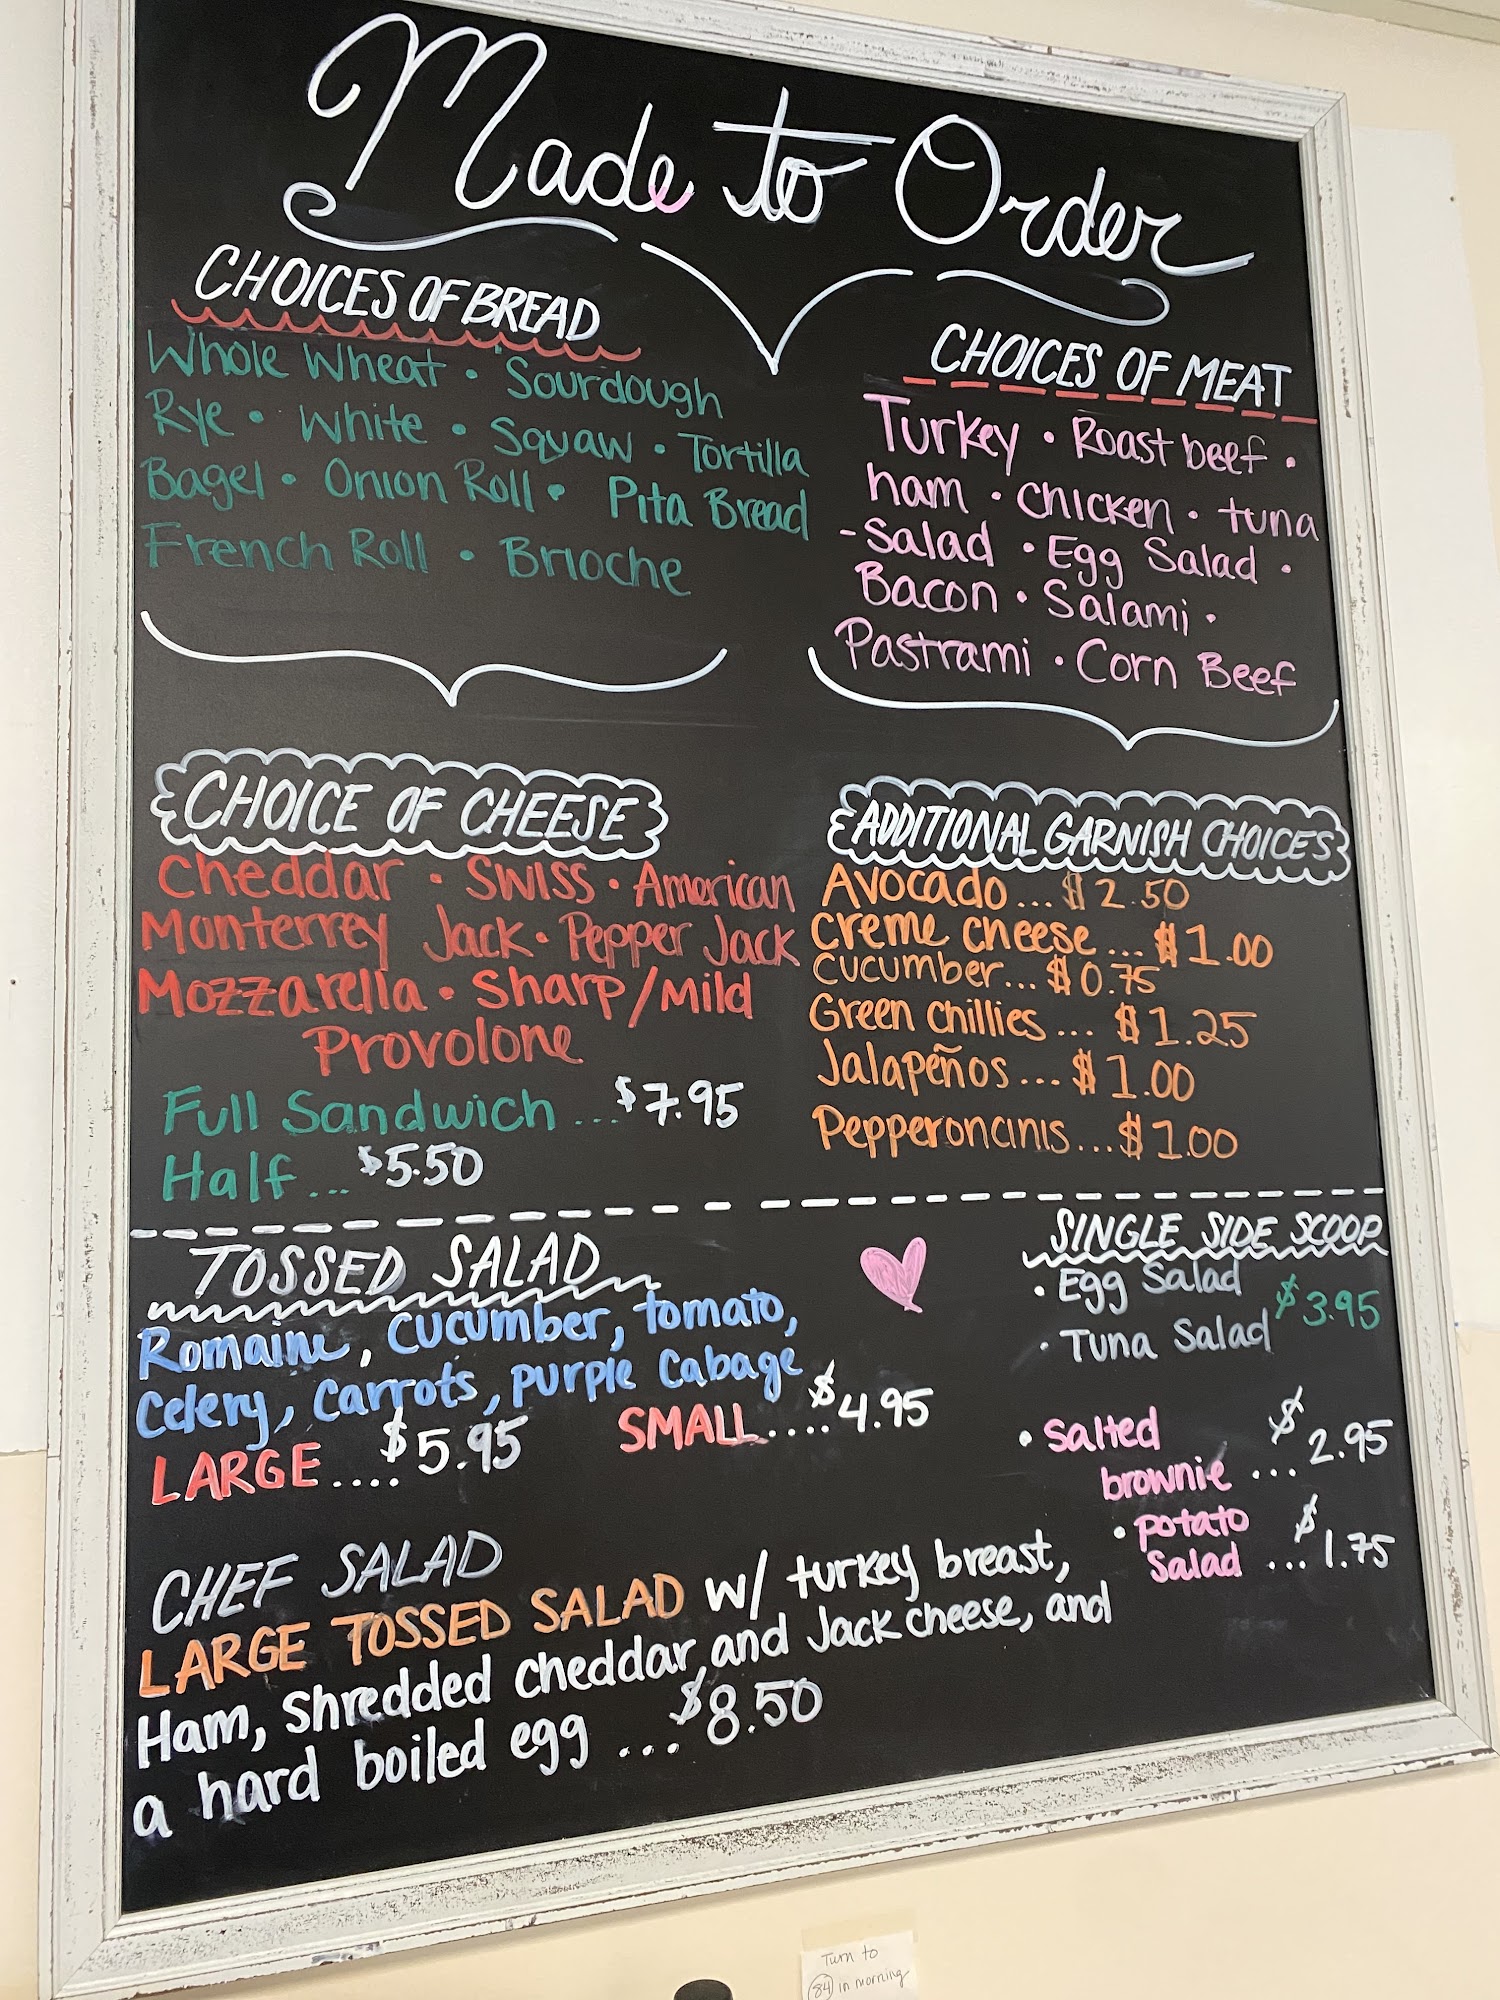 Made to Order
CHOICES OF BREAD
Whole Wheat • Sourdough
Rye • White • Squaw • Tortilla
Bagel • Onion Roll • Pita Bread
French Roll • Brioche
CHOICES OF MEAT
Turkey • Roast beef •
ham • chicken • tuna
-salad • Egg Salad •
Bacon • Salami •
Pastrami • Corn Beef
CHOICE OF CHEESE
Cheddar • Swiss • American
Monterrey Jack • Pepper Jack
Mozzarella • Sharp/Mild
Provolone
Full Sandwich ... $7.95
Half ... $5.50
ADDITIONAL GARNISH CHOICES
Avocado ... $2.50
Creme cheese ... $1.00
Cucumber ... $0.75
Green chillies ... $1.25
Jalapeños ... $1.00
Pepperoncinis ... $1.00
TOSSED SALAD
Romaine, cucumber, tomato,
Celery, carrots, purple Cabage
LARGE .... $5.95 SMALL .... $4.95
SINGLE SIDE SCOOP
• Egg Salad
• Tuna Salad $3.95
• salted
brownie ... $2.95
• potato
salad ... $1.75
CHEF SALAD
LARGE TOSSED SALAD w/ turkey breast,
Ham, shredded cheddar, and Jack cheese, and
a hard boiled egg ... $8.50
Turn to
84 in morning